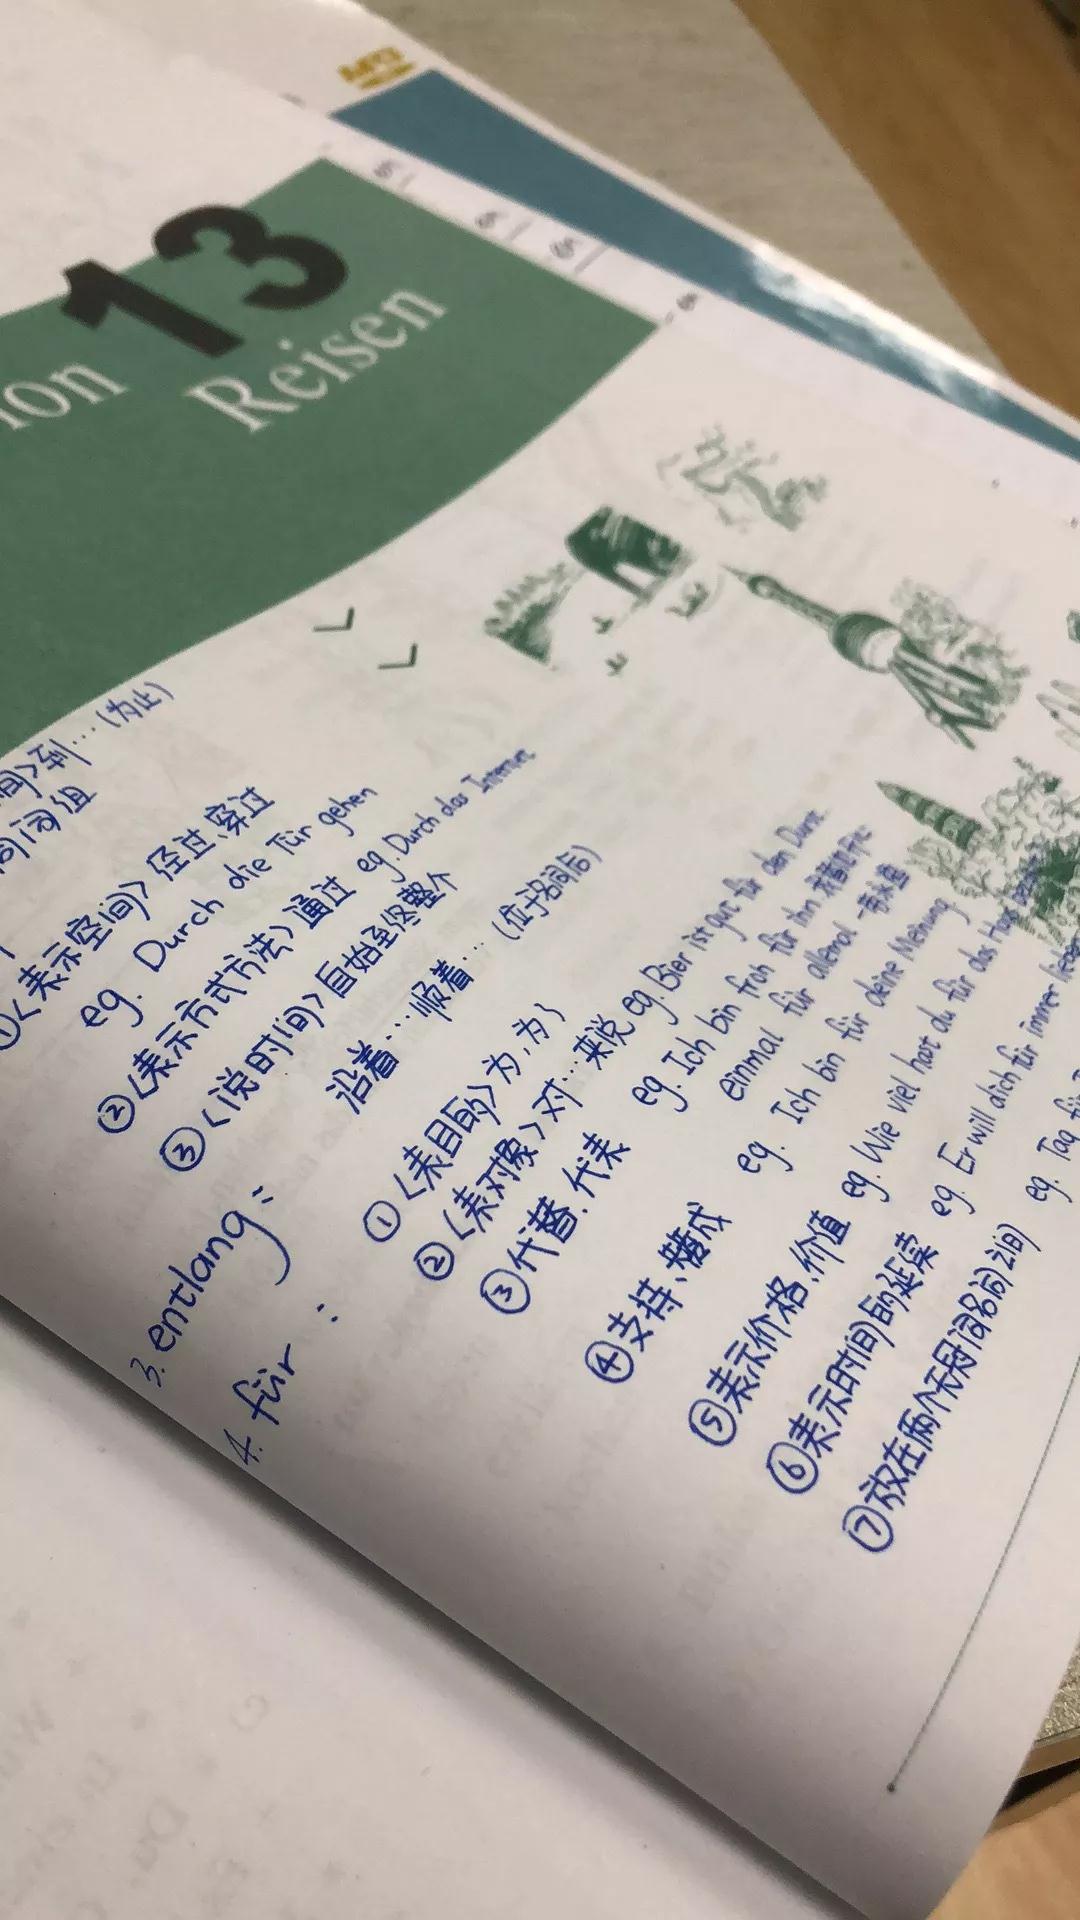 MP3
13
Reisen
间>到…(为止)
词词组
①<表示空间>经过、穿过
eg. Durch die Tür gehen
②<表示方式方法>通过 eg. Durch das Internet
③<说时间>自始至终整个
3. entlang: 沿着…顺着…(位于名词后)
4. für: ①<表目的>为,为了
②<表对象>对…来说 eg. Bier ist gut für den Durst.
③代替.代表 eg. Ich bin froh für ihn
einmal für allemal
④支持、赞成 eg. Ich bin für deine Meinung
⑤表示价格.价值 eg. Wie viel hast du für das Haus
⑥表示时间的延续 eg. Er will dich für immer lieben
⑦放在两个无冠词名词之间 eg. Tag für